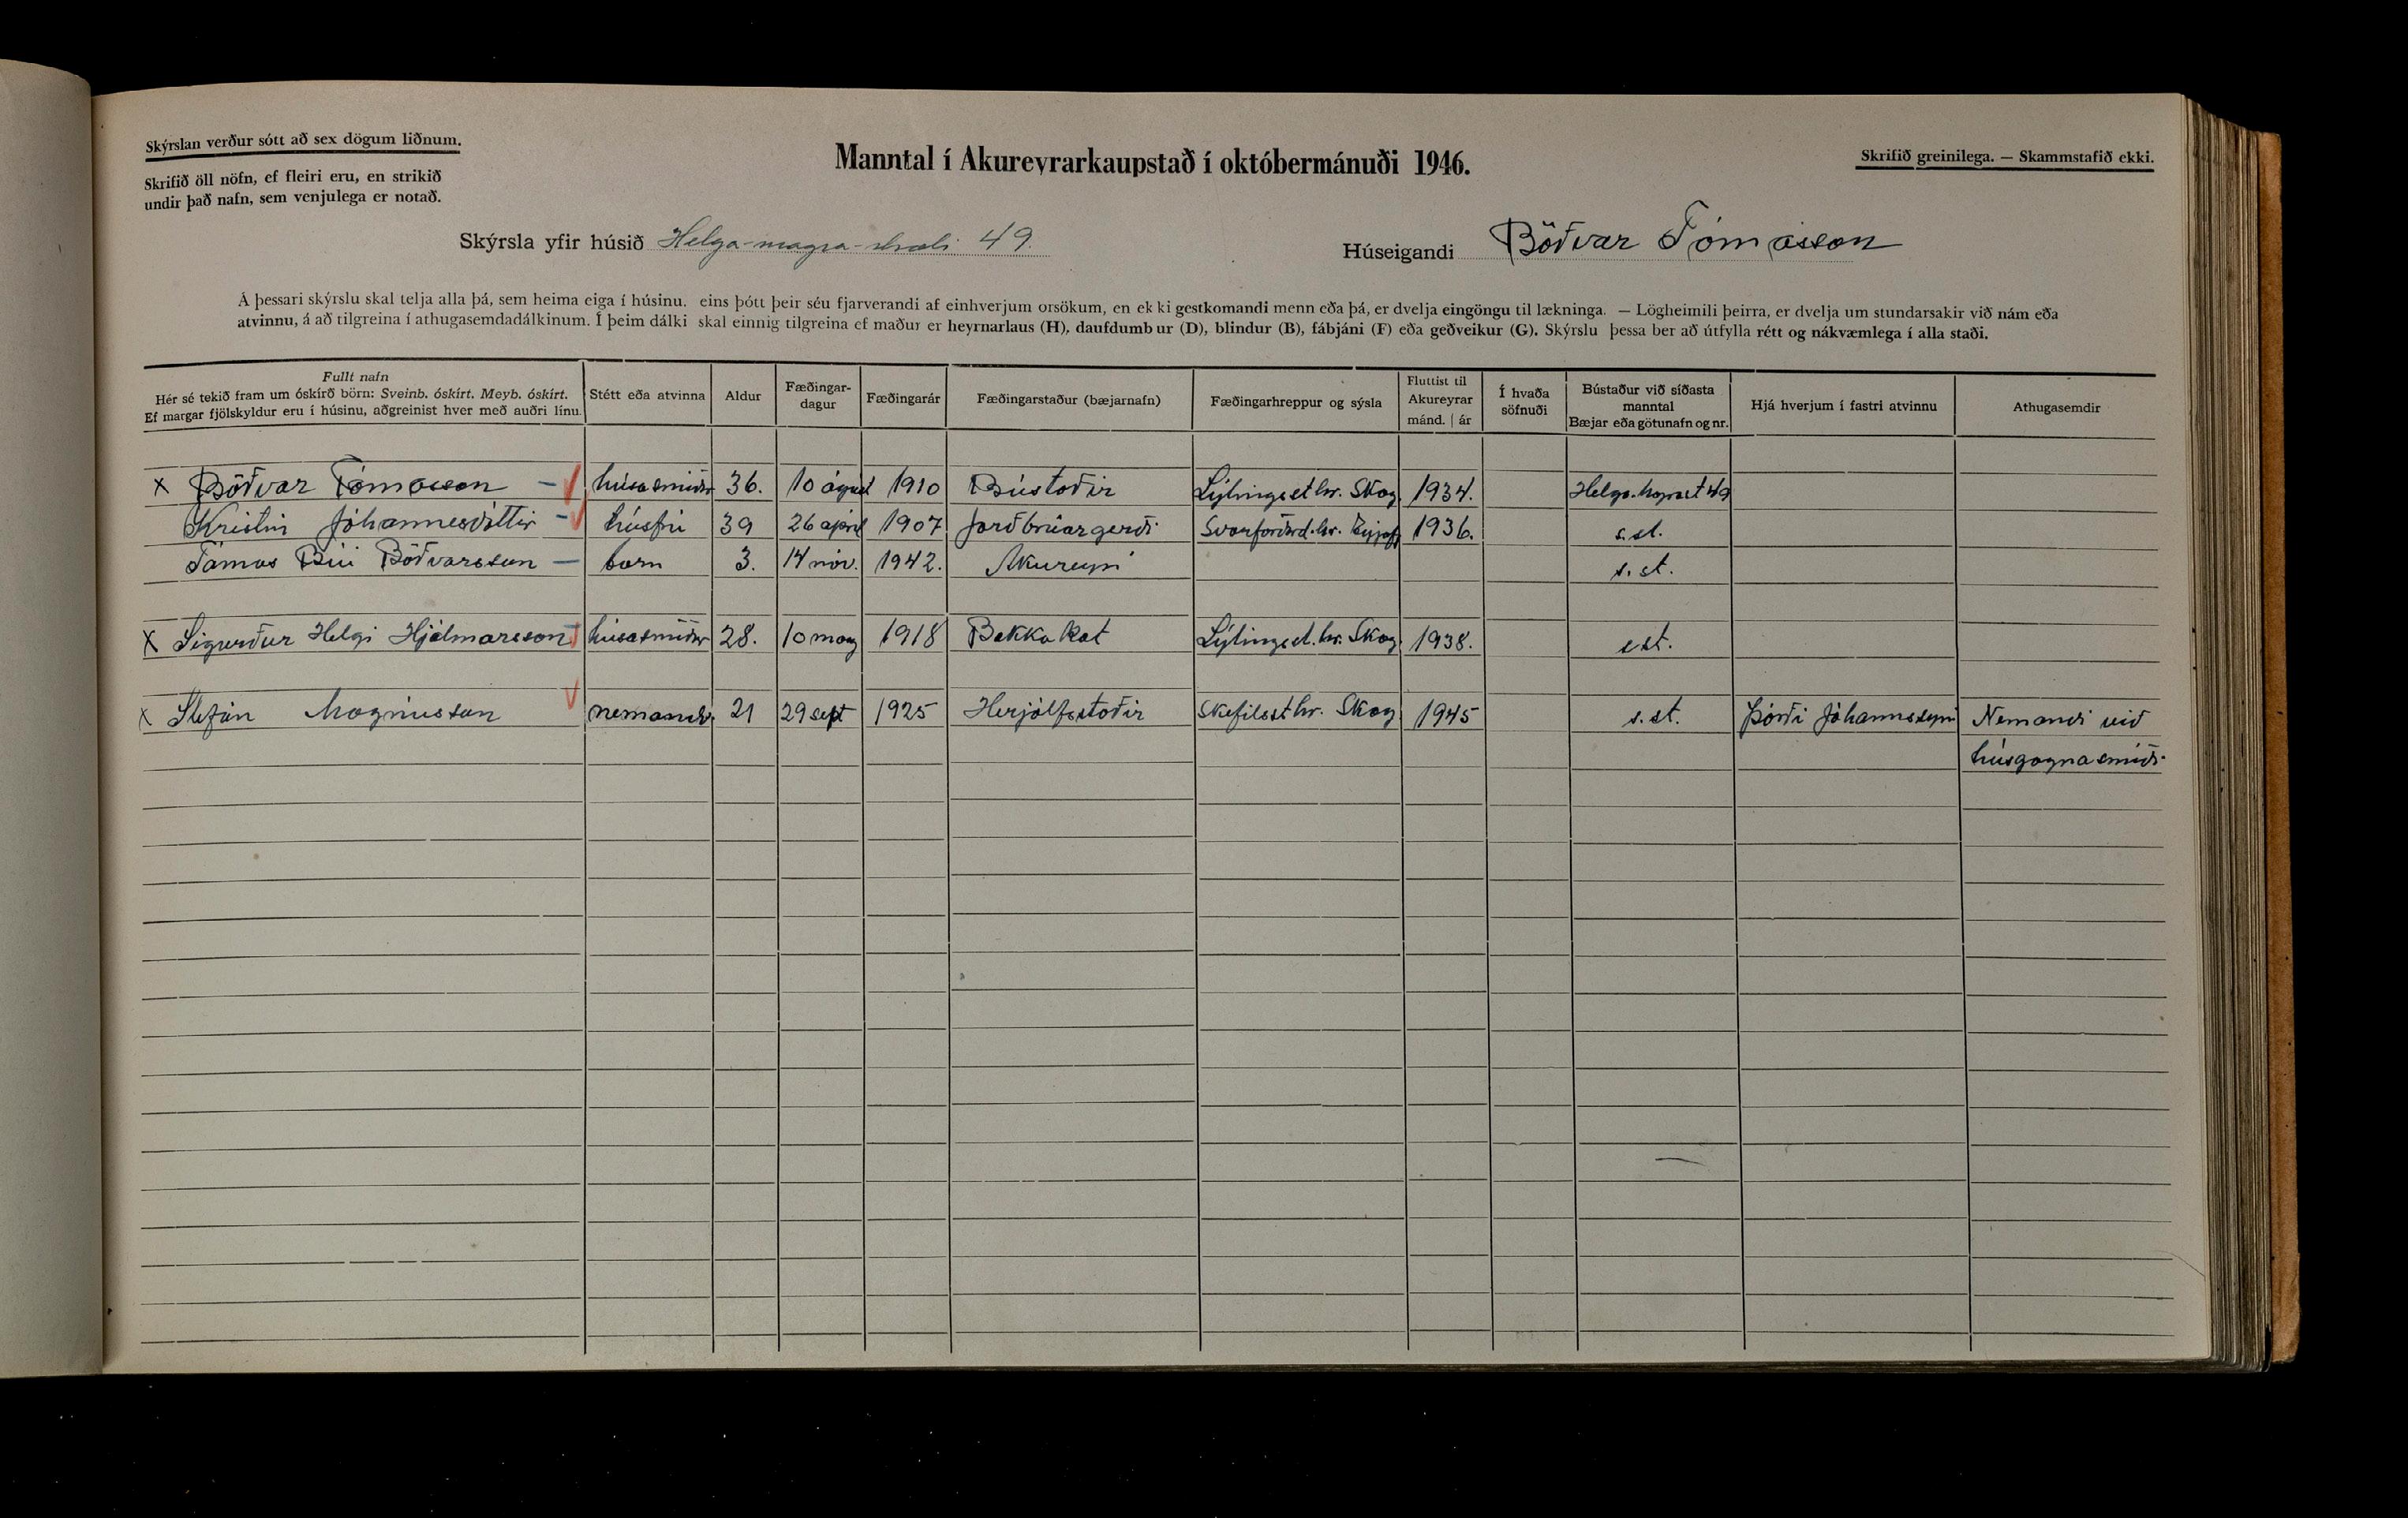 Skýrslan verður sótt að sex dögum liðnum.
Skrifið öll nöfn, ef fleiri eru, en strikið
undir það nafn, sem venjulega er notað.
Manntal í Akureyrarkaupstað í októbermánuði 1946.
Skrifið greinilega. — Skammstafið ekki.
Skýrsla yfir húsið Helga-magra-stræti 49.
Húseigandi Böðvar Tómasson
Á þessari skýrslu skal telja alla þá, sem heima eiga í húsinu, eins þótt þeir séu fjarverandi af einhverjum orsökum, en ekki gestkomandi menn eða þá, er dvelja eingöngu til lækninga. — Lögheimili þeirra, er dvelja um stundarsakir við nám eða
atvinnu, á að tilgreina í athugasemdadálkinum. Í þeim dálki skal einnig tilgreina ef maður er heyrnarlaus (H), daufdumbur (D), blindur (B), fábjáni (F) eða geðveikur (G). Skýrslu þessa ber að útfylla rétt og nákvæmlega í alla staði.
Fullt nafn
Hér sé tekið fram um óskírð börn: Sveinb. óskírt. Meyb. óskírt.
Ef margar fjölskyldur eru í húsinu, aðgreinist hver með auðri línu.
Stétt eða atvinna
Aldur
Fæðingar-
dagur
Fæðingarár
Fæðingarstaður (bæjarnafn)
Fæðingarhreppur og sýsla
Fluttist til
Akureyrar
mánd. | ár
Í hvaða
söfnuði
Bústaður við síðasta
manntal
Bæjar eða götunafn og nr.
Hjá hverjum í fastri atvinnu
Athugasemdir
x Böðvar Tómasson — húsasmiður 36. 10 ágúst 1910 Bústoðir Lýtingsst.hr. Skag. 1934. Helga-magrast 49
Kristín Jóhannesdóttir — húsfrú 39 26 apríl 1907 Jarðbrúargerði Svarfaðard.hr. Eyjaf. 1936. s.st.
Tómas Búi Böðvarsson — barn 3. 14 nóv. 1942. Akureyri s.st.
x Sigurður Helgi Hjálmarsson húsasmiður 28. 10 maí 1918 Bakkakot Lýtingsst.hr. Skag. 1938. s.st.
x Stefán Magnússon nemandi 21 29 sept 1925 Herjólfsstoðir Skefilsst.hr. Skag 1945 s.st. Þórði Jóhannssyni Nemandi við
húsgagnasmíði.